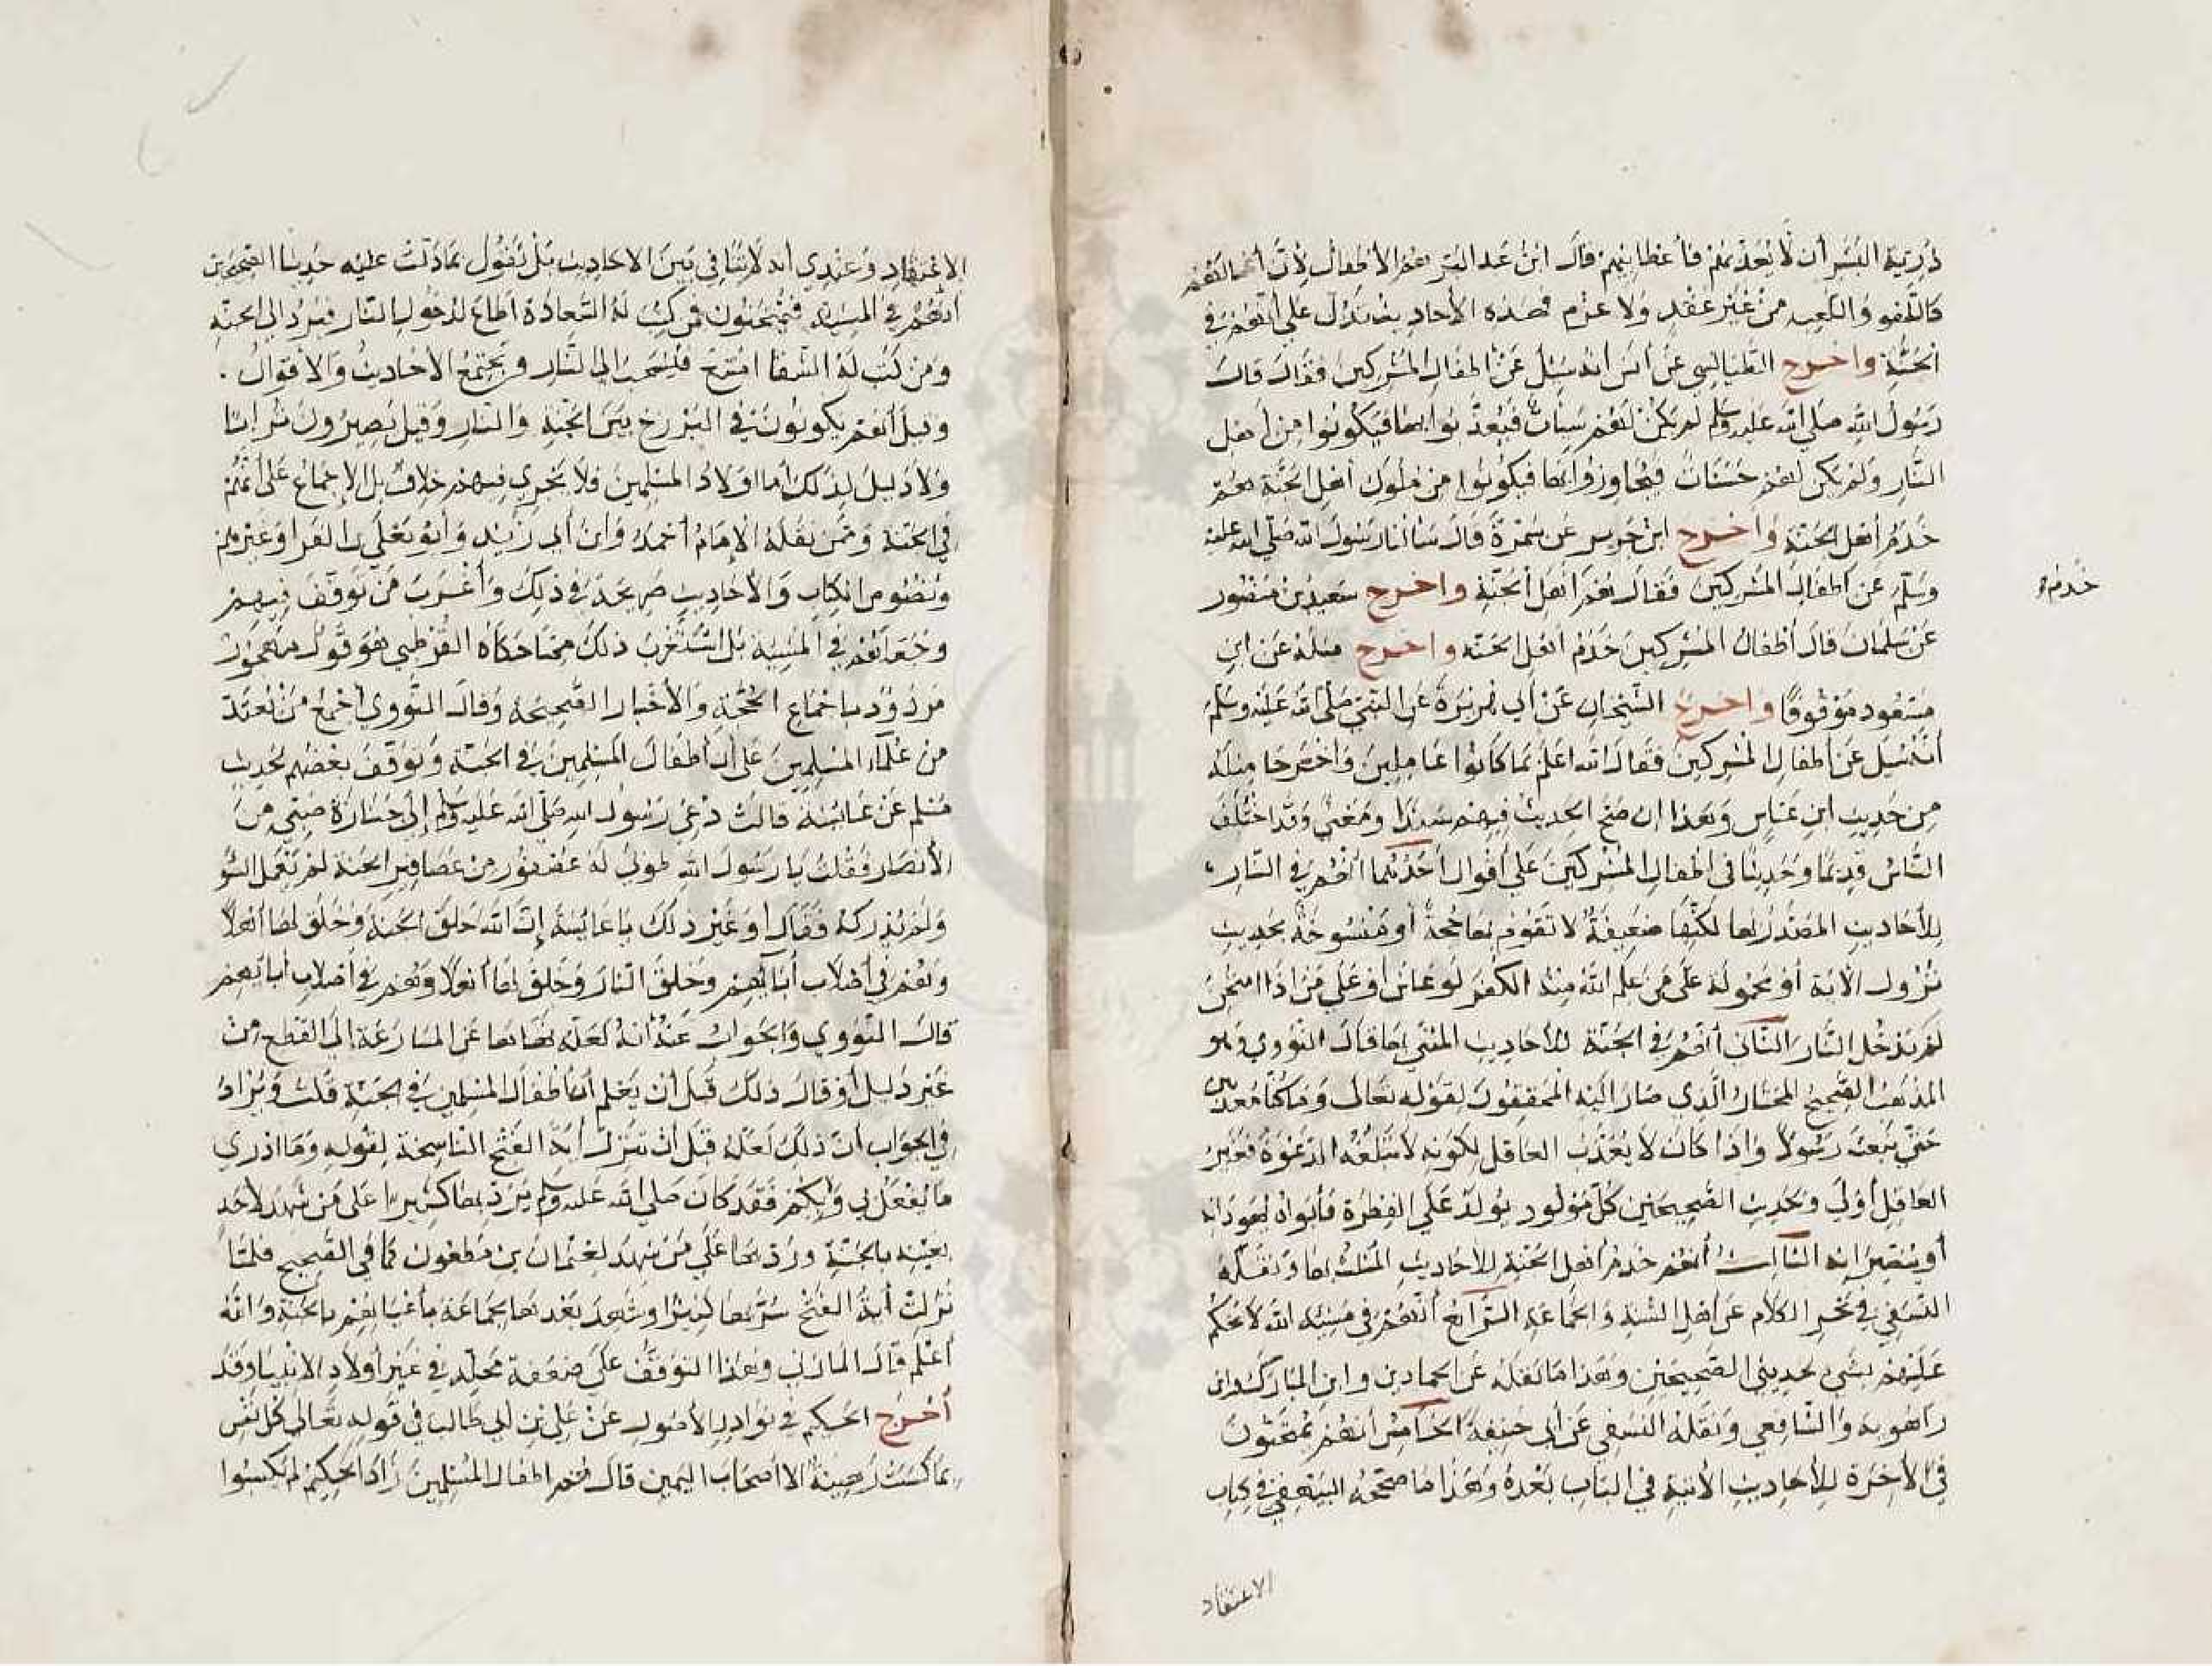 ذرية البشر أن لا يعذبهم فأعطانيهم قال ابن عبد البر هم الأطفال لأن أعمالهم
كاللهو واللعب من غير عقد ولا عزم فهذه الأحاديث تدل على أنهم في
الجنة وأخرج الطيالسي عن أنس أنه سئل عن أطفال المشركين فقال قال
رسول الله صلى الله عليه وسلم لم يكن لهم سيئات فيعذبوا بها فيكونوا من أهل
النار ولم يكن لهم حسنات فيجاوزوا بها فيكونوا من ملوك أهل الجنة هم
خدم أهل الجنة وأخرج ابن جرير عن سمرة قال سألنا رسول الله صلى الله عليه
وسلم عن أطفال المشركين فقال هم أهل الجنة وأخرج سعيد بن منصور
خدم
عن سلمان قال أطفال المشركين خدم أهل الجنة وأخرج مثله عن ابن
مسعود موقوفا وأخرج الشيخان عن أبي هريرة عن النبي صلى الله عليه وسلم
أنه سئل عن أطفال المشركين فقال الله أعلم بما كانوا عاملين وأخرجا مثله
من حديث ابن عباس وهذا إن صح الحديث فيهم سندا ومعنى وقد اختلف
الناس قديما وحديثا في أطفال المشركين على أقوال أحدها أنهم في النار
للأحاديث المصدر بها لكنها ضعيفة لا تقوم بها حجة أو منسوخة بحديث
نزول الآية أو محمولة على من علم الله منه الكفر لو عاش أو على من إذا امتحن
لم يدخل النار الثاني أنهم في الجنة للأحاديث المثنى بها قال النووي وهو
المذهب الصحيح المختار الذي صار إليه المحققون لقوله تعالى وما كنا معذبين
حتى نبعث رسولا وإذا كان لا يعذب العاقل لكونه لا تبلغه الدعوة فغير
العاقل أولى وبحديث الصحيحين كل مولود يولد على الفطرة فأبواه يهودانه
أو ينصرانه الثالث أنهم خدم أهل الجنة للأحاديث المثلث بها ونقله
النسفي في بحر الكلام عن أهل السنة والجماعة الرابع أنهم في مشيئة الله لا يحكم
عليهم بشيء لحديثي الصحيحين وهذا ما نقله عن الحمادين وابن المبارك وابن
راهويه والشافعي ونقله النسفي عن أبي حنيفة الخامس أنهم يمتحنون
في الآخرة للأحاديث الآتية في الباب بعده وهذا ما صححه البيهقي في كتاب
الاعتقاد
الاعتقاد وعندي أنه لا تنافي بين الأحاديث بل نقول بما دلت عليه حديثا الصحيحين
أنهم في المشيئة فيمتحنون فمن كتب له السعادة أطاع لدخول النار فيرد إلى الجنة
ومن كتب له الشقا امتنع فيسحب إلى النار وتجتمع الأحاديث والأقوال .
وقيل أنهم يكونون في البرزخ بين الجنة والنار وقيل يصيرون ترابا
ولا دليل لذلك أما أولاد المسلمين فلا يجري فيهم خلاف بل الإجماع على أنهم
في الجنة وممن نقله الإمام أحمد وابن أبي زيد وأبو يعلى بن الفرا وغيرهم
ونصوص الكتاب والأحاديث صريحة في ذلك وأغرب من توقف فيهم
وجعلهم في المشيئة بل استغرب ذلك مما حكاه القرطبي هو قول مهجور
مردود بإجماع الحجة والأخبار الصحيحة وقال النووي أجمع من يعتد
من علماء المسلمين على أن أطفال المسلمين في الجنة وتوقف بعضهم لحديث
مسلم عن عائشة قالت دعي رسول الله صلى الله عليه وسلم إلى جنازة صبي من
الأنصار فقلت يا رسول الله طوبى له عصفور من عصافير الجنة لم يعمل السو
ولم يدركه فقال أو غير ذلك يا عايشة إن الله خلق الجنة وخلق لها أهلا
وهم في أصلاب آبائهم وخلق النار وخلق لها أهلا وهم في أصلاب آبائهم
قال النووي والجواب عنه أنه لعله نهاها عن المسارعة إلى القطع من
غير دليل أو قال ذلك قبل أن يعلم أن أطفال المسلمين في الجنة قلت ويزاد
في الجواب أن ذلك لعله قبل أن تنزل آية الفتح الناسخة لقوله وما أدري
ما يفعل بي ولا بكم فقد كان صلى الله عليه وسلم يرد بها كثيرا على من شهد لأحد
بعينه بالجنة ورد بها على من شهد لعثمان بن مظعون كما في الصحيح فلما
نزلت آية الفتح سر بها كثيرا وشهد بعدها لجماعة بأعيانهم بالجنة والله
أعلم قال المازني وهذا التوقف على ضعفه محله في غير أولاد الأنبيا وقد
أخرج الحكيم في نوادر الأصول عن علي بن أبي طالب في قوله تعالى كل نفس
بما كسبت رهينة إلا أصحاب اليمين قال هم أطفال المسلمين زاد الحكيم لم يكسبوا